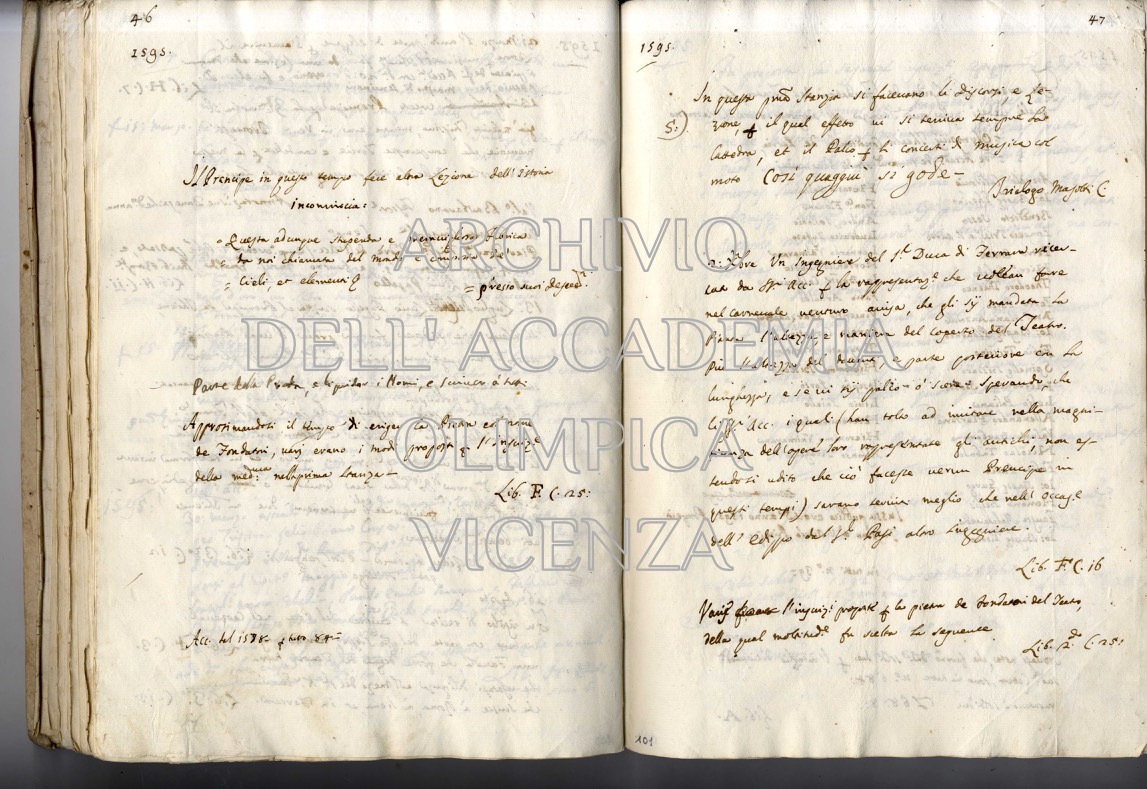 46
1595.
Il Prencipe in questo tempo fece altra Lezione dell'Istoria
incomincia:
= Questa adunque stupenda e
= da noi chiamata del mondo e
= Cieli, et elementi
= presso suoi
Parte della Proda, e liquidar i Nomi, e scriver à tutti
Approsimandosi il tempo di eriger la Pietra col nome
de Fondatori, varij erano i modi proposti p l'Inscriz.e
della med.ma nella prima stanza
Lib. F. C. 25:
Acc. del 1578 84
47
1595.
In questa pma Stanza si facevano li discorsi, e Le-
5:)
zione, p il qual effetto vi si teniva sempre la
Cattedra, et il Palco p li concerti di Musica col
moto Così quaggiù si gode
Briologo Majoli C:
2: Xbre Un Ingegniere del S.r Duca di Ferrara ricer-
cato da q.ti Acc.i p la rappresentaz.e che volean fare
nel Carnevale venturo avisa, che gli sij mandata la
Pianta l'altezza, e maniera del coperto del Teatro.
Più l'altezza del davanti, e parte posteriore con la
lunghezza, e se vi sij palco ò scena sperando, che
li SS.i Acc. i quali (han tolto ad imitare nella magni-
ficenza dell'opere lor rappresentate gli antichi, non es-
sendosi udito che ciò facesse verun Prencipe in
questi tempi) sarano serviti meglio che nell'occas.e
dell'Edippo del S.r Pasi altro Ingegniere.
Lib. F. C. 16
Varie l'inscrizi proposte p la pietra de fondatori del Teatro,
della qual moltitud.e fu scelta la seguente
Lib. 2.do C. 25:
101
ARCHIVIO
DELL'ACCADEMIA
OLIMPICA
VICENZA